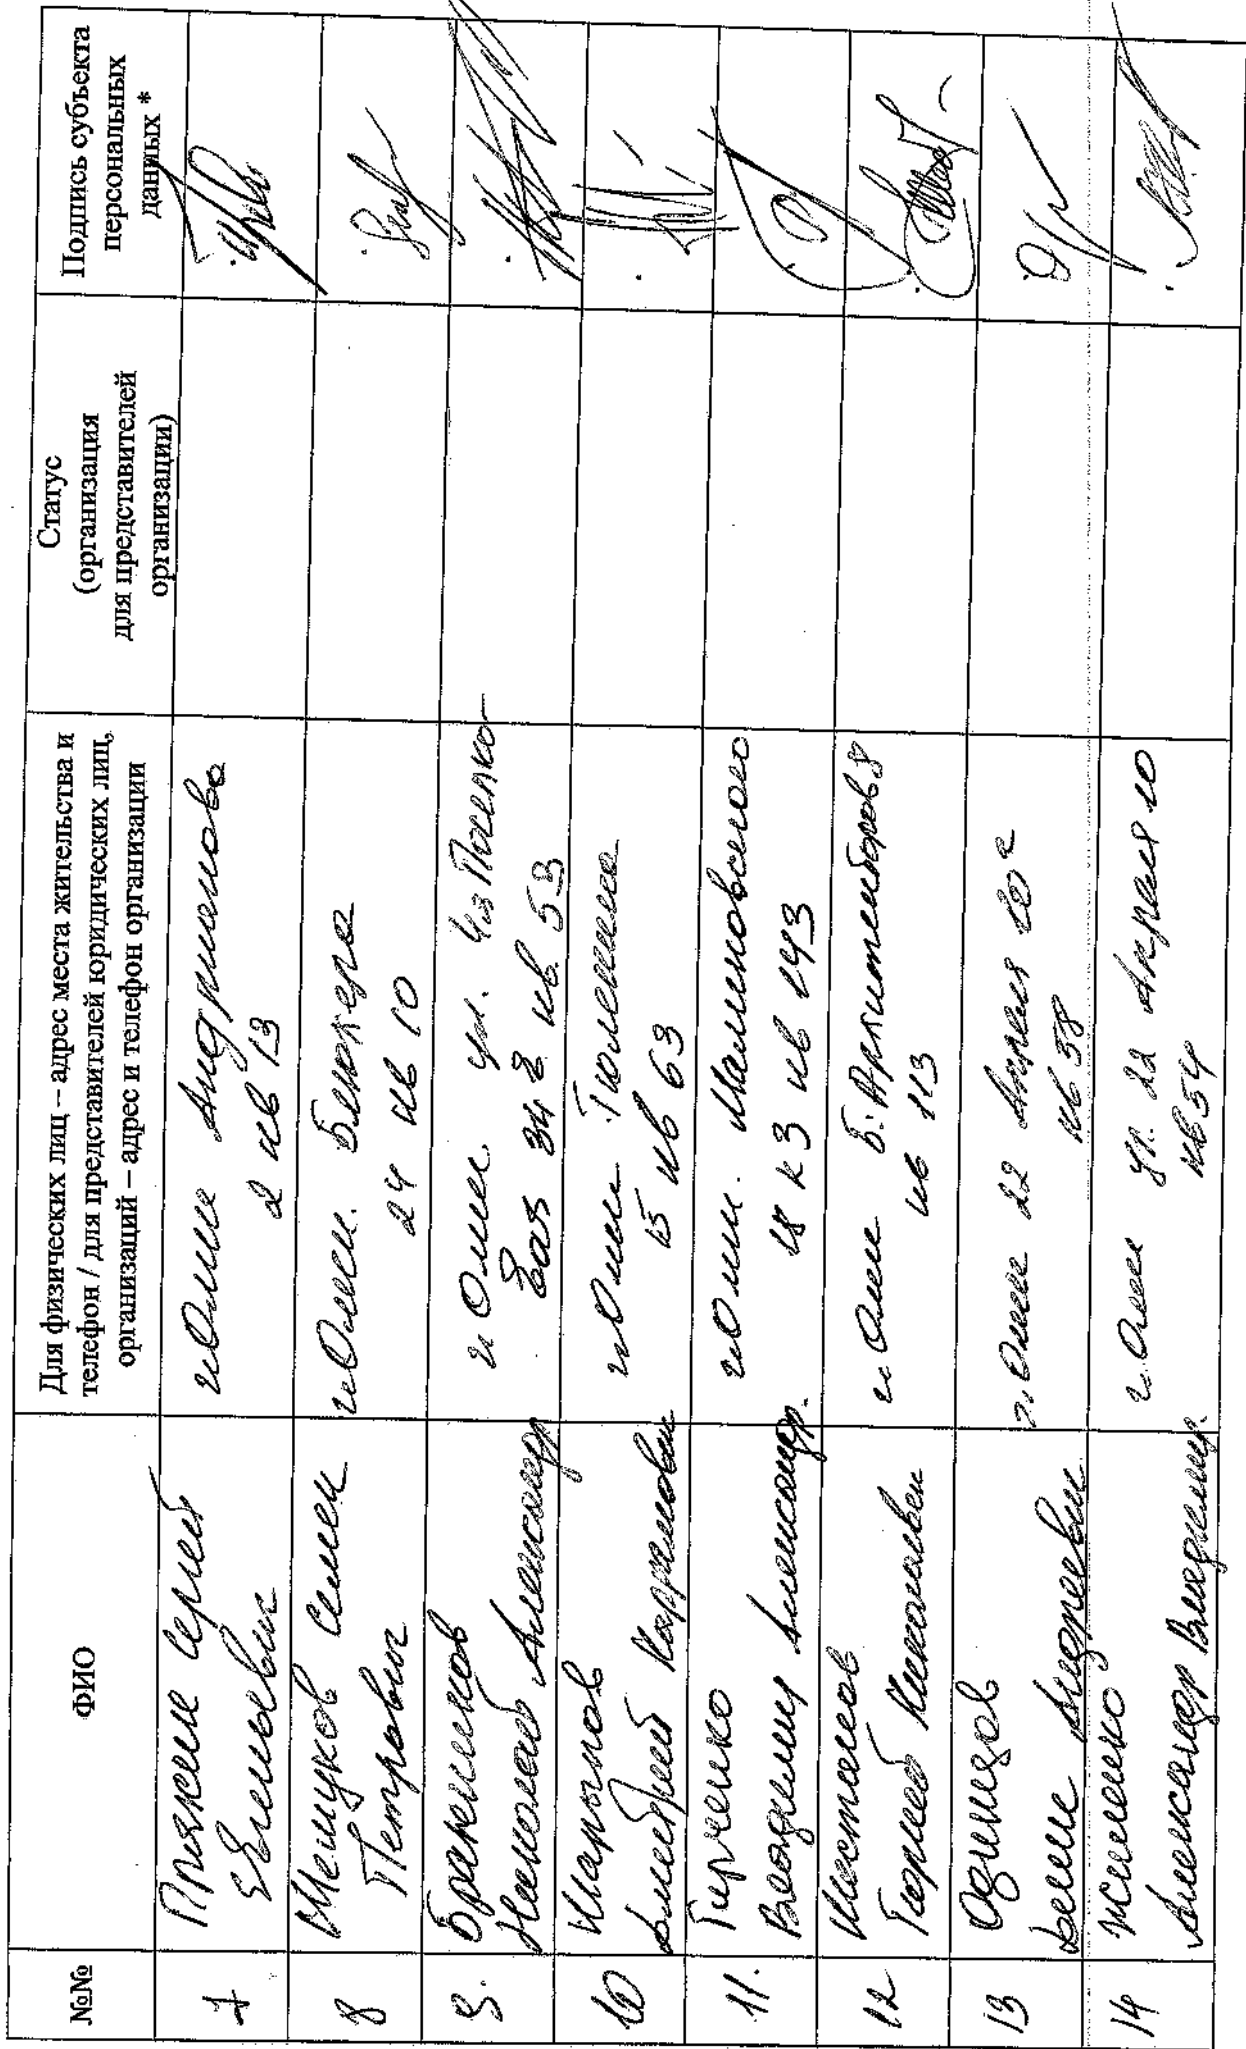 №№
ФИО
Для физических лиц – адрес места жительства и
телефон / для представителей юридических лиц,
организаций – адрес и телефон организации
Статус
(организация
для представителей
организации)
Подпись субъекта
персональных
данных *
7
Сергей
г Омск Андрианова
2 кв 13
8
Семен
Петрович
г Омск. Блюхера
24 кв 10
9.
Бражников
Александр
г Омск. ул.
34 кв. 53
10
Шарыпов
г Омск Тюленина
15 кв 63
11.
Гирченко
Владимир Александр.
г Омск. Малиновского
18 к 3 кв 143
12
Шестаков
Георгий Николаевич
г Омск Б. Архитекторов 8
кв 113
13
Одинцов
Денис Андреевич
г. Омск 22 Апреля
кв 38
14
Жиленко
Александр Владимир.
г. Омск ул. 22 Апреля 10
кв 54